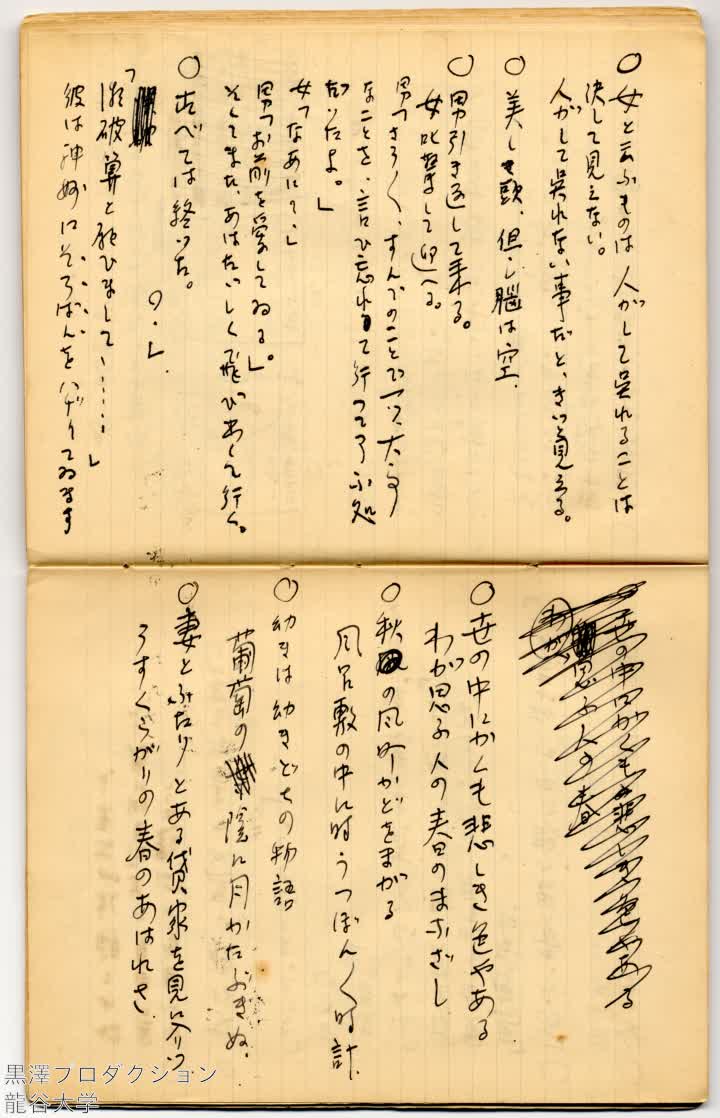 ○女と云ふものは人がして呉れることは
決して見えない。
人がして呉れない事だと、きっと見える。
○美しき頭、但し腦は空、
○男引き返して来る。
女吃驚して迎へる。
男「さう〳〵、すんでのことで一つ大事
なことを、言ひ忘れて行って了ふ処
だったよ。」
女「なあに？」
男「お前を愛してゐる。」
そしてまた、あはたゞしく飛び出して行く。
○すべては終った。
の・」.
破算と願ひまして、……」
彼は神妙にそろばんをハヂいてゐます
世の中にかくも悲しき色やある
わが思ふ人の春
○世の中にかくも悲しき色やある
わが思ふ人の春日のまなざし
○秋の風町かどをまがる
風呂敷の中に時うつぼん〳〵時計.
○幼きは幼きどちの物語
葡萄の陰に月かたぶきぬ.
○妻とふたりとある貸家を見に入りつ
うすくらがりの春のあはれさ.
黒澤プロダクション
龍谷大学